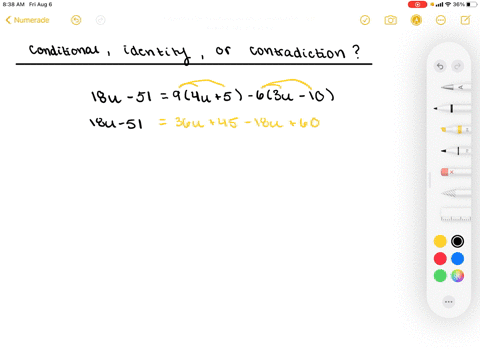 8:38 AM Fri Aug 6
36%
Numerade
conditional, identity, or contradiction?
18u - 51 = 9(4u + 5) - 6(3u - 10)
18u - 51 = 36u + 45 - 18u + 60